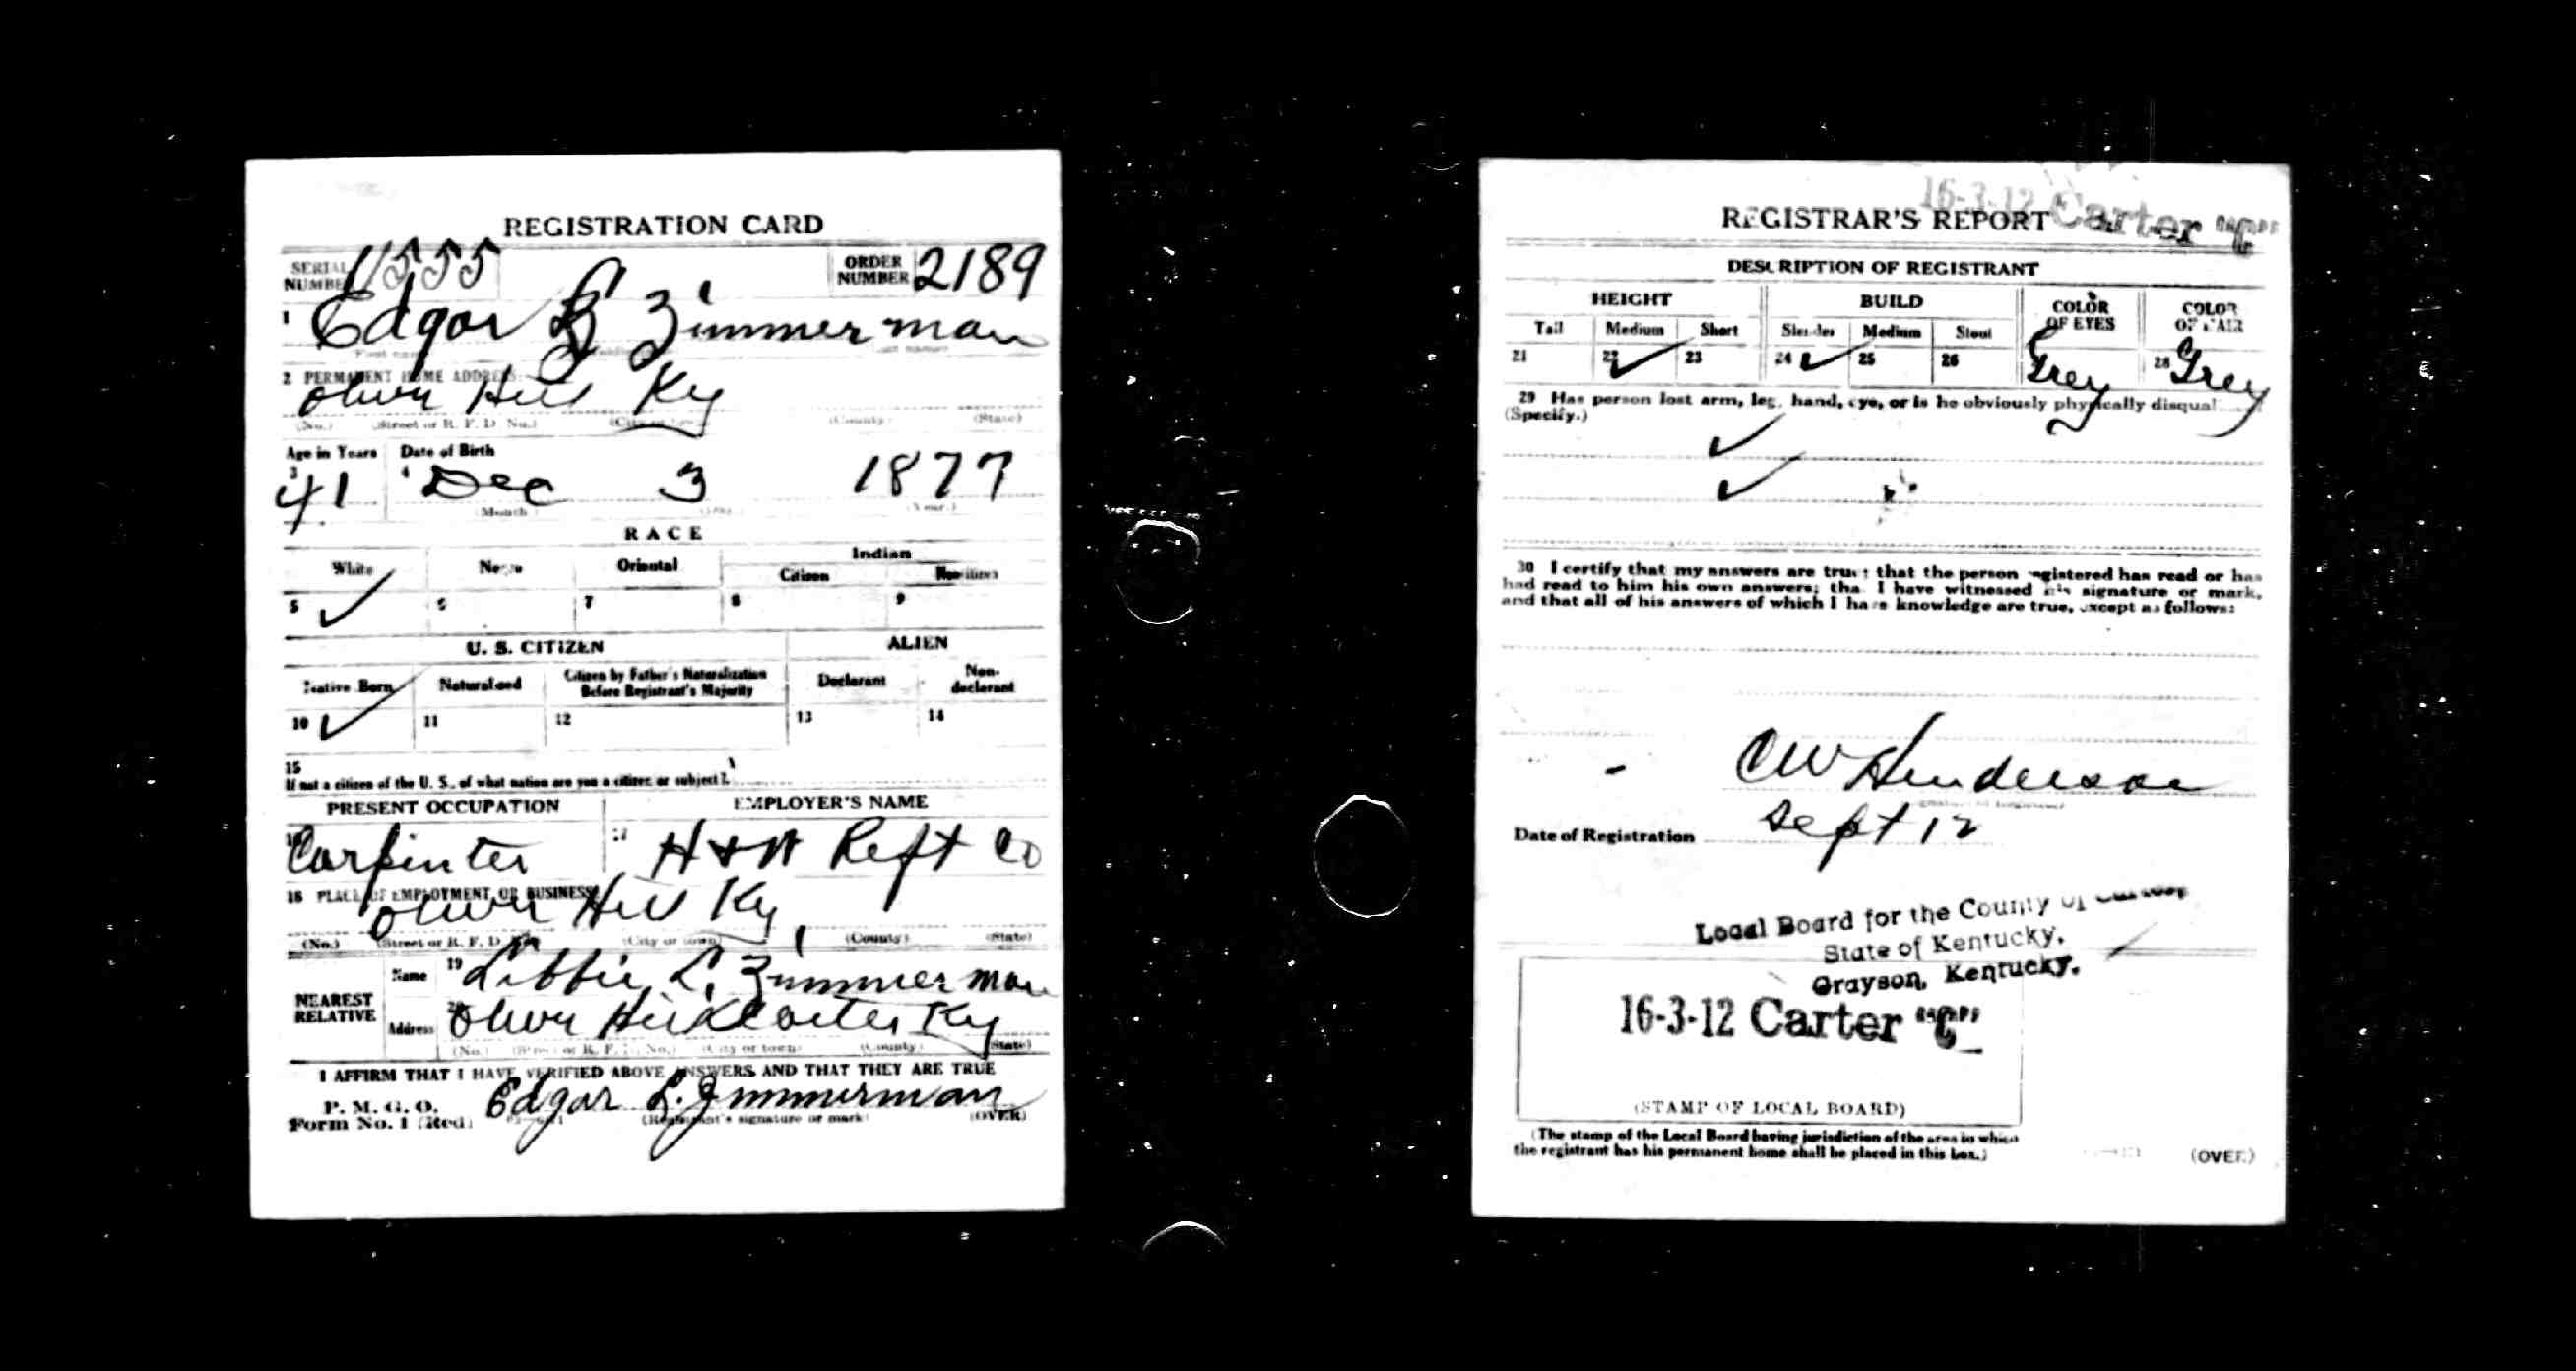 REGISTRATION CARD
SERIAL NUMBER 1555 ORDER NUMBER 2189
1 Edgar L Zimmerman
2 PERMANENT HOME ADDRESS:
Olive Hill Ky
(No.) (Street or R. F. D. No.) (City or town) (County) (State)
Age in Years Date of Birth
3 41 4 Dec 3 1877
(Month) (Day) (Year.)
RACE
White Negro Oriental Indian
Citizen Noncitizen
5 ✓ 6 7 8 9
U. S. CITIZEN ALIEN
Native Born Naturalized Citizen by Father's Naturalization Before Registrant's Majority Declarant Non-declarant
10 ✓ 11 12 13 14
15
If not a citizen of the U. S., of what nation are you a citizen or subject?
PRESENT OCCUPATION EMPLOYER'S NAME
Carpinter 17 H & W Reft Co
18 PLACE OF EMPLOYMENT OR BUSINESS
Olive Hill Ky
(No.) (Street or R. F. D. (City or town) (County) (State)
NEAREST RELATIVE
Name 19 Libbie L. Zimmerman
Address 20 Olive Hill Carter Ky
(No.) (Street or R. F. D. No.) (City or town) (County) (State)
I AFFIRM THAT I HAVE VERIFIED ABOVE ANSWERS AND THAT THEY ARE TRUE
P. M. G. O.
Form No. 1 (Red) Edgar L. Zimmerman
(Registrant's signature or mark) (OVER)
16-3-12 Carter "C"
REGISTRAR'S REPORT
DESCRIPTION OF REGISTRANT
HEIGHT BUILD COLOR OF EYES COLOR OF HAIR
Tall Medium Short Slender Medium Stout
21 22 ✓ 23 24 ✓ 25 26 Grey 28 Grey
29 Has person lost arm, leg, hand, eye, or is he obviously physically disqual
(Specify.)
✓
✓
30 I certify that my answers are true; that the person registered has read or has
had read to him his own answers; that I have witnessed his signature or mark,
and that all of his answers of which I have knowledge are true, except as follows:
CW Henderson
Date of Registration Sept 12
Local Board for the County of Carter
State of Kentucky,
Grayson, Kentucky.
16-3-12 Carter "C"
(STAMP OF LOCAL BOARD)
(The stamp of the Local Board having jurisdiction of the area in which
the registrant has his permanent home shall be placed in this box.)
(OVER)